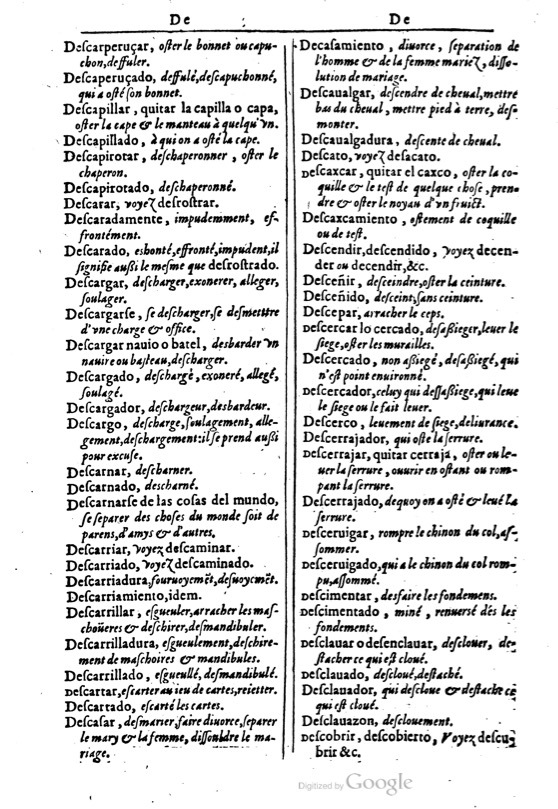 De
Deſcarperuçar, oſter le bonnet ou capu-
chon, deffuler.
Deſcaperuçado, deffulé, deſcapuchonné,
qui a oſté ſon bonnet.
Deſcapillar, quitar la capilla o capa,
oſter la cape & le manteau à quelqu'vn.
Deſcapillado, à qui on a oſté la cape.
Deſcapirotar, deſchaperonner, oſter le
chaperon.
Deſcapirotado, deſchaperonné.
Deſcarar, voyez desroſtrar.
Deſcaradamente, impudemment, eſ-
frontément.
Deſcarado, eshonté, effronté, impudent, il
ſignifie außi le meſme que desroſtrado.
Deſcargar, deſcharger, exonerer, alleger,
ſoulager.
Deſcargarſe, ſe deſcharger, ſe deſmettre
d'vne charge & office.
Deſcargar nauio o batel, desbarder vn
nauire ou baſteau, deſcharger.
Deſcargado, deſchargé, exoneré, allegé,
ſoulagé.
Deſcargador, deſchargeur, desbardeur.
Deſcargo, deſcharge, ſoulagement, alle-
gement, deſchargement: il ſe prend außi
pour excuſe.
Deſcarnar, deſcharner.
Deſcarnado, deſcharné.
Deſcarnarſe de las coſas del mundo,
ſe ſeparer des choſes du monde ſoit de
parens, d'amys & d'autres.
Deſcarriar, voyez deſcaminar.
Deſcarriado, voyez deſcaminado.
Deſcarriadura, fouruoyemēt, deſuoycmēt.
Deſcarriamiento, idem.
Deſcarrillar, eſgueuler, arracher les maſ-
choüeres & deſchirer, deſmandibuler.
Deſcarrilladura, eſgueulement, deſchire-
ment de maſchoires & mandibules.
Deſcarrillado, eſgueullé, deſmandibulé.
Deſcartar, eſcarter au ieu de cartes, reietter.
Deſcartado, eſcarté les cartes.
Deſcaſar, deſmarier, faire diuorce, ſeparer
le mary & la femme, diſſouldre le ma-
riage.
De
Decaſamiento, diuorce, ſeparation de
l'homme & de la femme mariez, diſſo-
lution de mariage.
Deſcaualgar, deſcendre de cheual, mettre
bas du cheual, mettre pied à terre, deſ-
monter.
Deſcaualgadura, deſcente de cheual.
Deſcato, voyez deſacato.
Deſcaxcar, quitar el caxco, oſter la co-
quille & le teſt de quelque choſe, pren-
dre & oſter le noyau d'vn fruict.
Deſcaxcamiento, oſtement de coquille
ou de teſt.
Deſcendir, deſcendido, voyez decen-
der ou decendir, &c.
Deſceñir, deſceindre, oſter la ceinture.
Deſceñido, deſceint, ſans ceinture.
Deſcepar, arracher le ceps.
Deſcercar lo cercado, deſaßieger, leuer le
ſiege, oſter les murailles.
Deſcercado, non aßiegé, deſaßiegé, qui
n'eſt point enuironné.
Deſcercador, celuy qui deſſaßiege, qui leue
le ſiege ou le fait leuer.
Deſcerco, leuement de ſiege, deliurance.
Deſcerrajador, qui oſte la ſerrure.
Deſcerrajar, quitar cerraja, oſter ou le-
uer la ſerrure, ouurir en oſtant ou rom-
pant la ſerrure.
Deſcerrajado, dequoy on a oſté & leué la
ſerrure.
Deſceruigar, rompre le chinon du col, aſ-
ſommer.
Deſceruigado, qui a le chinon du col rom-
pu, aſſommé.
Deſcimentar, desfaire les fondemens.
Deſcimentado, miné, renuersé dés les
fondements.
Deſclauar o deſenclauar, deſclouer, de-
ſtacher ce qui eſt cloué.
Deſclauado, deſcloué, deſtaché.
Deſclauador, qui deſcloue & deſtache ce
qui eſt cloué.
Deſclauazon, deſclouement.
Deſcobrir, deſcobierto, voyez deſcu-
brir &c.
Digitized by Google